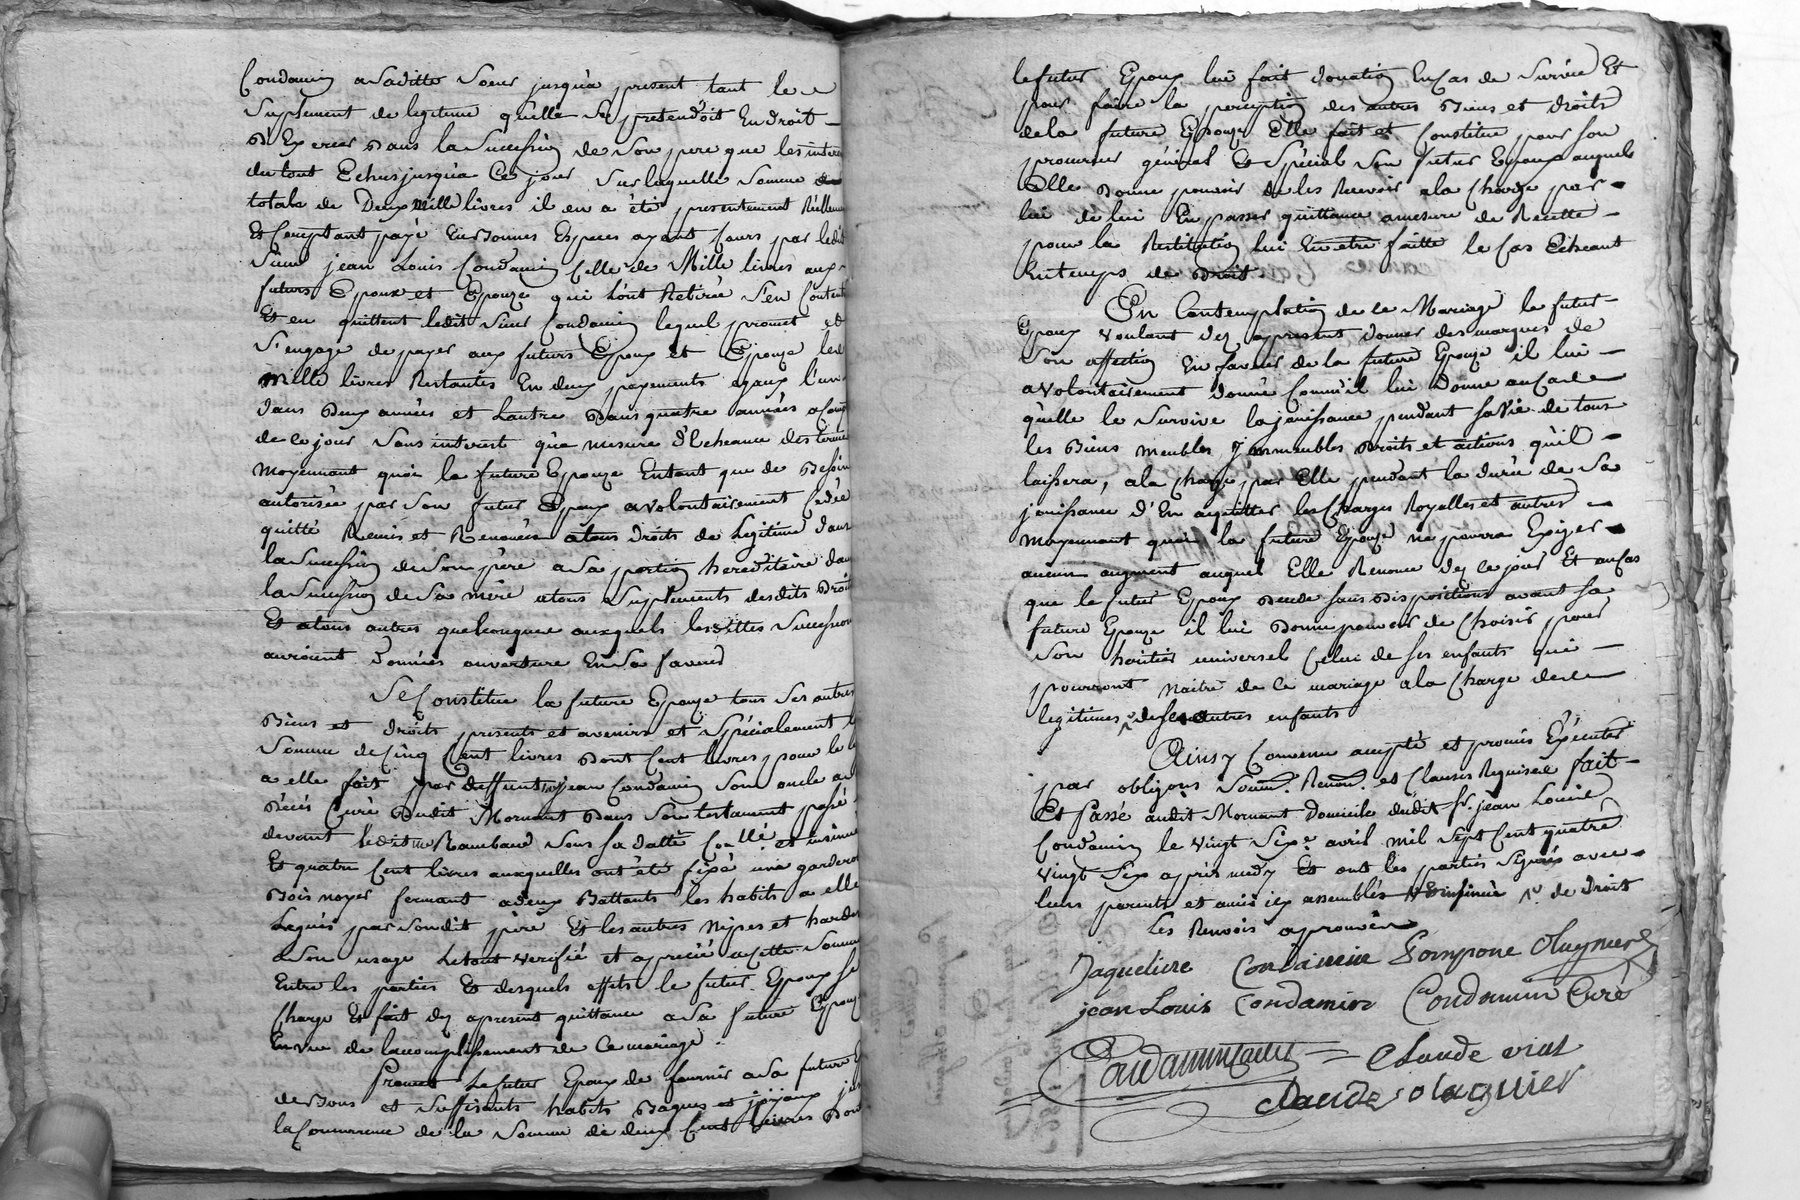 Condamin a Saditte Soeur jusqu'a present tant le
Suplement de legitime qu'elle Se pretendoit En droit
D'Exercer Dans la Succession de Son pere que les interets
du tout Echus jusqu'a Ce jour Sur laquelle Somme
totale de Deux Mille livres il en a été presentement Réllement
Et Comptant payé En bonnes Especes ayant Cours par ledit
Sieur jean Louis Condamin Celle de Mille livres aux
futurs Epoux et Epouze qui l'ont Retirée S'en Contentent
Et en quittent ledit Sieur Condamin lequel promet et
S'engage de payer aux futurs Epoux et Epouze les
Mille livres Restantes En deux payements egaux l'un
dans deux années et Lautre Dans quatre années a Compter
de Ce jour Sans interest qu'a mesure d'Echeance des termes
moyennant quoi la future Epouze Entant que de Besoin
autorisée par Son futur Epoux a volontairement Cedée
quitté Remis et Renoncée a tous droits de Legitime dans
la Succession de Son père a Sa portion hereditaire dans
la Succession de Sa mère a tous Suplements desdits Droits
Et a tous autres quelconques auxquels lesdittes Successions
auroient Données ouverture En Sa faveur
Se Constitue la future Epouze tous Ses autres
Biens et droits presents et avenirs et Spécialement la
Somme de Cinq Cent livres Dont Cent livres pour le legs
a elle fait par deffunt mre jean Condamin Son oncle au
Décés Curé Dudit Mornant Dans Son testament passé
devant ledit me Rambaud Sous Sa datte Collé et insinué
Et quatre Cent livres auxquelles ont été fixé une garderobe
Bois noyer fermant a deux Battants les habits a elle
Legués par Sondit père Et les autres Nipes et hardes
a Son usage Le tout verifié et aprecié a Cette Somme
Entre les parties Et desquels effets le futur Epoux Se
Charge Et fait dez apresent quittance a Sa future Epouze
En vue de l'accomplissement de Ce mariage.
Promet Le futur Epoux de fournir a Sa future
de bons et Suffisants habits Bagues et joyaux
la Concurrence de la Somme de deux Cent livres Dont
le futur Epoux lui fait donation En Cas de Survie Et
pour faire la perception des autres Biens et droits
de la future Epouze Elle fait et Constitue pour Son
procureur général Et Spécial Son futur Epoux auquel
Elle Donne pouvoir de les Recevoir a la Charge par
lui de lui En passer quittance a mesure de Recette
pour la Restitution Lui En etre faitte le Cas Echeant
En temps de Droit
En Contemplation de Ce Mariage le futur
Epoux voulant dez apresent donner des marques de
Son affection En faveur de la future Epouze il lui
a volontairement donné Comm'il lui Donne au Cas
qu'elle le Survive la jouissance pendant Sa Vie de tous
les Biens meubles Immeubles Droits et actions qu'il
laissera, a la Charge par Elle pendant la durée de Sa
jouissance d'En aquitter les Charges Royalles et autres
moyennant quoi la future Epouze ne pourra Exiger
aucun augment auquel Elle Renonce dez Ce jour Et au Cas
que le futur Epoux Decede Sans Dispositions avant Sa
future Epouze il lui Donne pouvoir de Choisir pour
Son heritier universel Celui de Ses enfants qui
pourront Naitre de Ce mariage a la Charge des
legitimes de Ses autres enfants
Ainsy Convenu accepté et promis Exécuter
par obligons Soum. Renon. et Clauses Requises fait
Et Passé audit Mornant Domicile dudit Sr. jean Louis
Condamin le vingt Six avril mil Sept Cent quatre
vingt Six après midy Et ont les parties Signés avec
leurs parents et amis icy assemblés de droit
Les Renvois aprouvés
Jaqueline Condamin Pompone Olagnier
jean Louis Condamin Condamin Curé
Condamin Claude vial
Claude olagnier